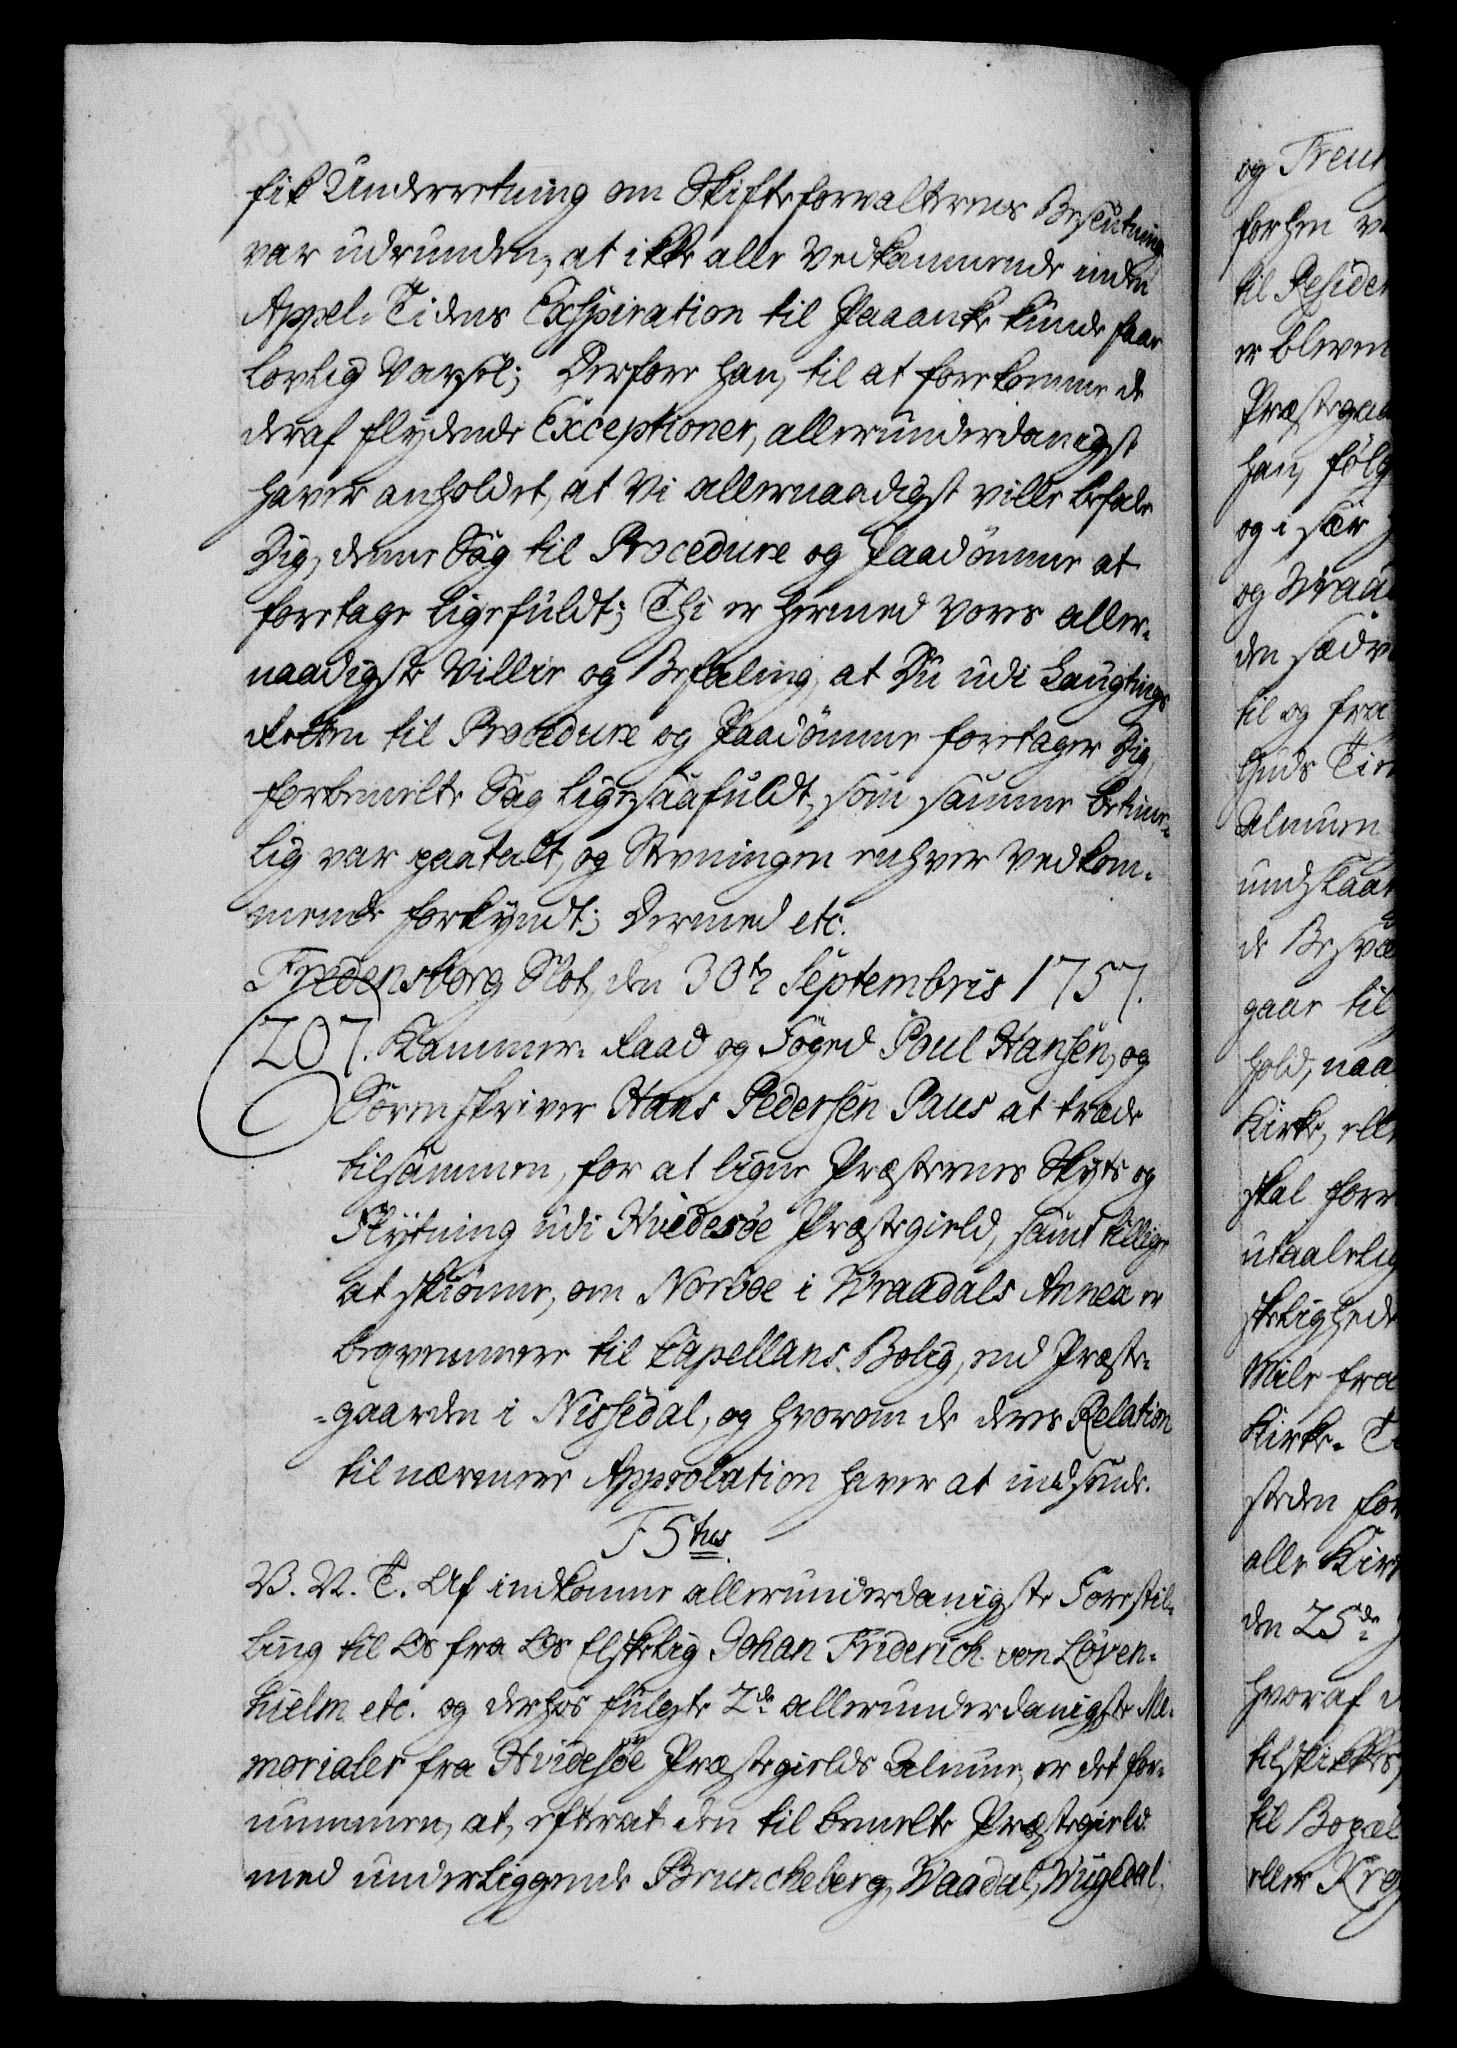 fik Underretning om Skifteforvalterens Beslutning
var udrunden, at ikke alle Vedkommende inden
Appel-Tidens Exspiration til Paaanke kunde faae
lovlig Varsel; Derfore han, til at forekomme de
deraf flydende Exceptioner, allerunderdanigst
haver anholdet, at Vi allernaadigst ville befale
Dig, denne Sag til Procedure og Paadömme at
foretage ligefuldt; Thi er hermed Vores aller-
naadigste Villie og Befaling, at Du udi Laugtings
Retten til Procedure og Paadömme foretager Dig
forbemelte Sag ligesaafuldt, som samme betime-
lig var paatalt, og Stevningen enhver Vedkom-
mende forkyndt; Dermed etc.
Fredensborg Slot, den 30te Septembris 1757.
207. Kammer-Raad og Foged Poul Hansen, og
Sorenskriver Hans Pedersen Paus at træde
tilsammen, for at ligne Præsternes Skyts og
Flytning udi Hvidesöe Præstegield, samt tillige
at skiönne, om Noröe i Wraadals Annex er
beqvemmere til Capellans Bolig, end Præste-
-gaarden i Nissedal, og hvorom de deres Relation
til nærmere Approbation haver at indsende.
F 5tus
V. V. T. Af indkomne allerunderdanigste Forestil-
ling til Os fra Os Elskelig Johan Friderich von Löven-
hielm etc. og derhos fulgte 2de allerunderdanigste Me-
morialer fra Hvidesöe Præstegields Almue, er det for-
nummen, at, efterat den til bemelte Præstegield
med underliggende Brunckeberg, Waadal, Wugedal,
og Treu
forhen
til Residen
er bleven
Præstegaa
han, følg
og i sær
og Wraa
den sædv
til og fra
Guds Tie
Almuen
undskaa
de Besvæ
gaar til
hold, naa
Kirke, elle
skal forr
utaalelig
skelighede
Mile fra
Kirke-
steden for
alle Kir
den 25de
hvoraf
tilskikkes,
til Bopæl
eller